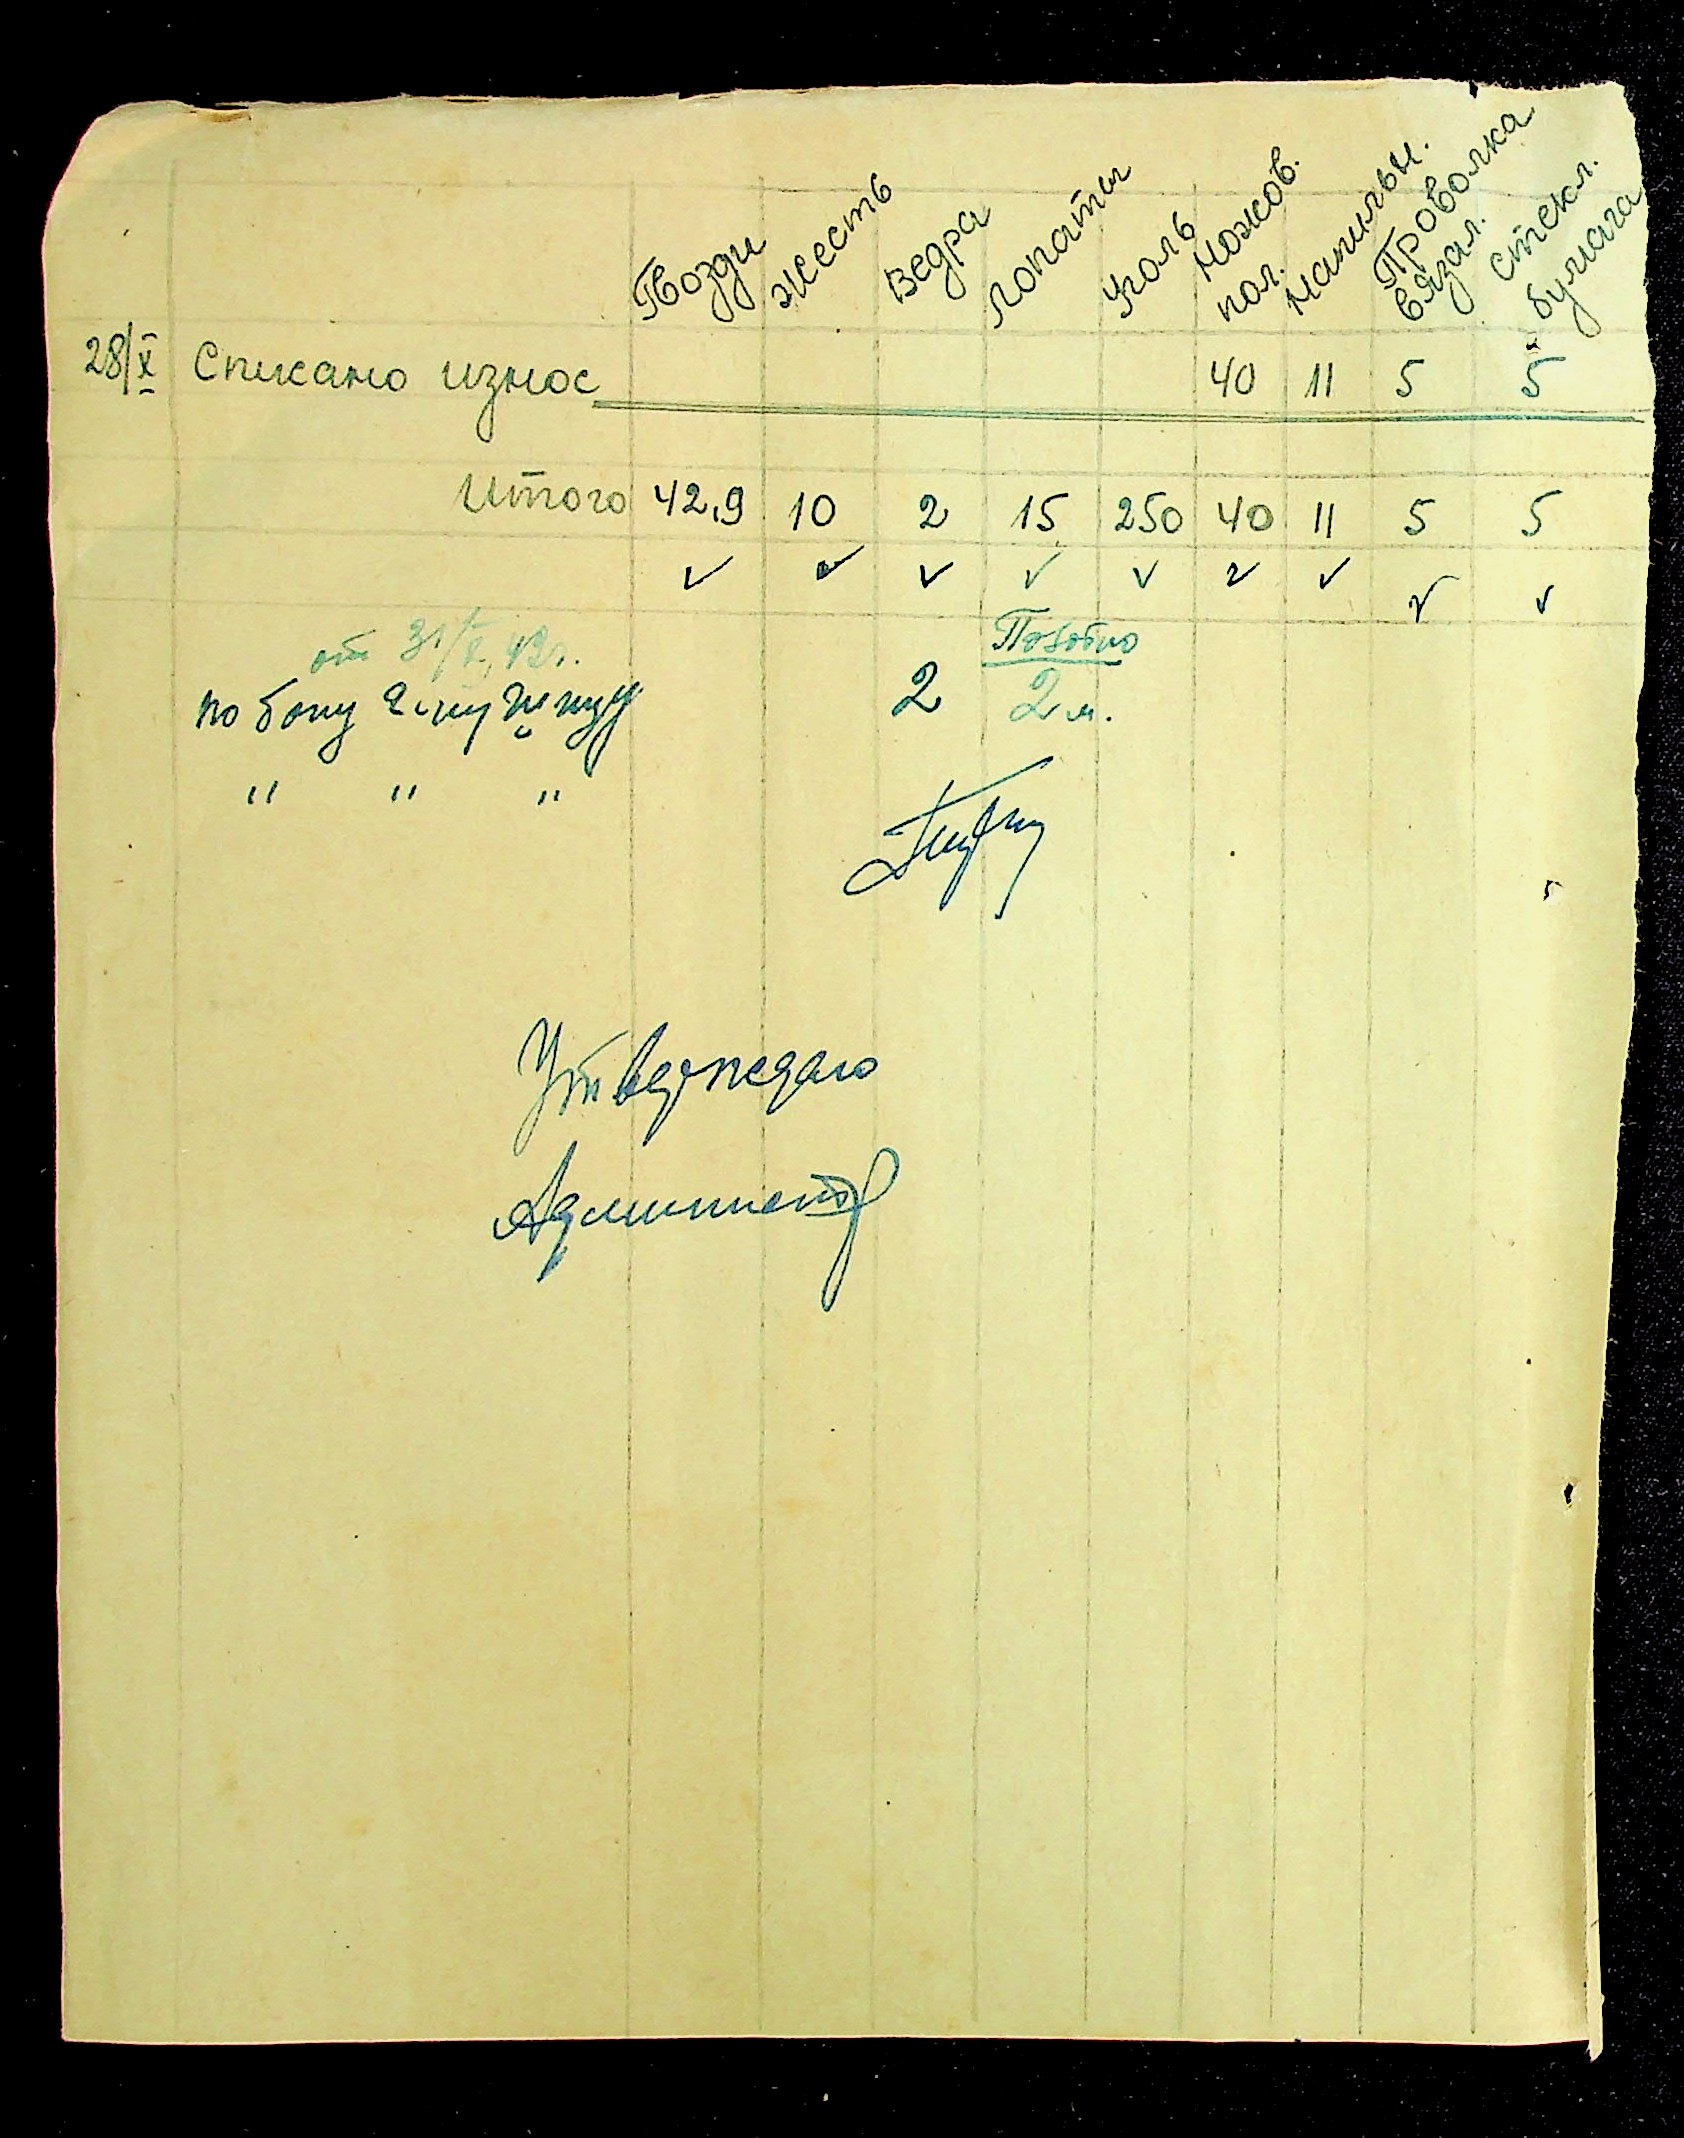 Гвозди жесть Ведра лопаты Уголь ножов. пол. напильн. Проволка вязал. стекл. бумага
28/X Списано износ 40 11 5 5
Итого 42,9 10 2 15 250 40 11 5 5
✓ ✓ ✓ ✓ ✓ ✓ ✓ ✓ ✓
от 31/X
по 2 2 м.
" " "
Утверждаю
Администр